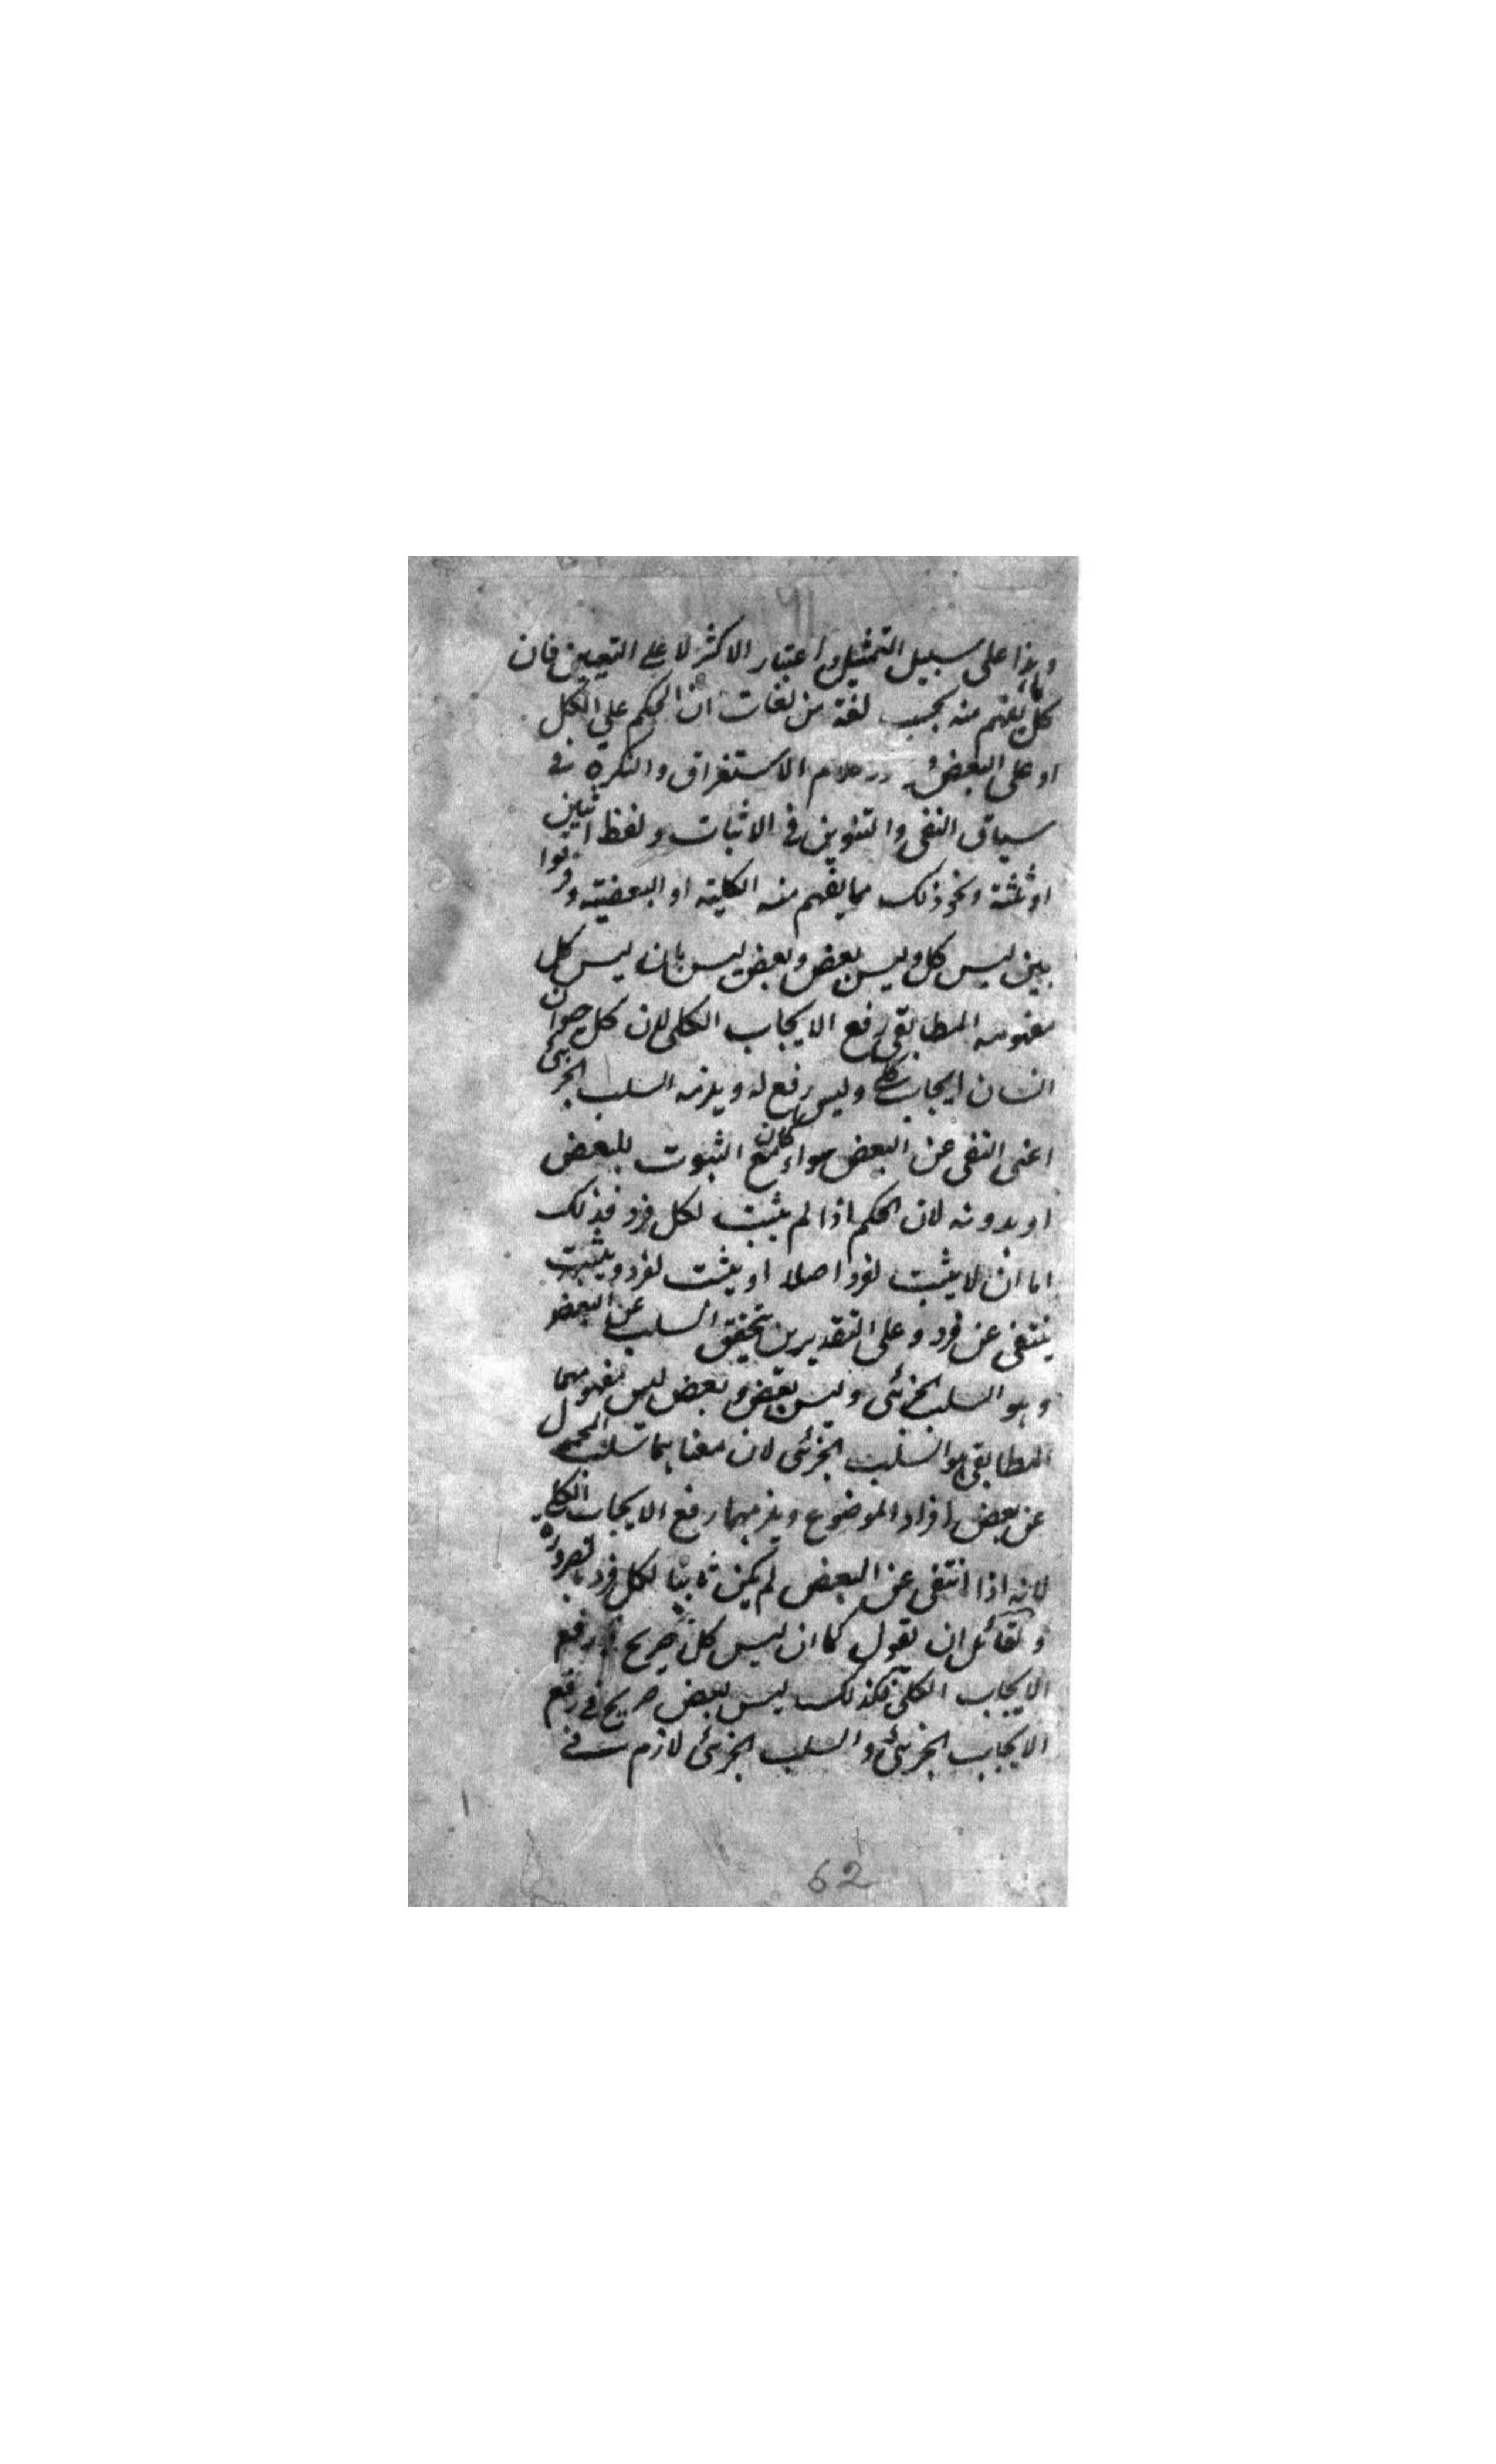 وهذا على سبيل التمثيل واعتبار الاكثر لا على التعيين فان
كل ما يفهم منه بحسب لغة من لغات ان الحكم على الكل
او على البعض فهو سور كلام الاستغراق والنكرة فى
سياق النفى والتنوين فى الاثبات ولفظ اثنين
او ثلثة ونحو ذلك مما يفهم منه الكلية او البعضية وفرقوا
بين ليس كل وليس بعض وبعض ليس بان ليس كل
مفهومه المطابقى رفع الايجاب الكلى لان كل حيوان
انسان ايجاب كلى وليس رفع له ويلزمه السلب الجزئى
اعنى النفى عن البعض سواء كان مع الثبوت للبعض
او بدونه لان الحكم اذا لم يثبت لكل فرد فذلك
اما ان لا يثبت لفرد اصلا او يثبت لفرد ويثبت
ينتفى عن فرد وعلى التقديرين يتحقق السلب عن البعض
وهو السلب الجزئى وليس بعض وبعض ليس مفهومهما
المطابقى هو السلب الجزئى لان معناهما سلب المحمول
عن بعض افراد الموضوع ويلزمهما رفع الايجاب الكلى
لانه اذا انتفى عن البعض لم يكن ثابتا لكل فرد بالضرورة
ولقائل ان يقول كما ان ليس كل صريح رفع
الايجاب الكلى فكذلك ليس بعض صريح فى رفع
الايجاب الجزئى والسلب الجزئى لازم فى
62